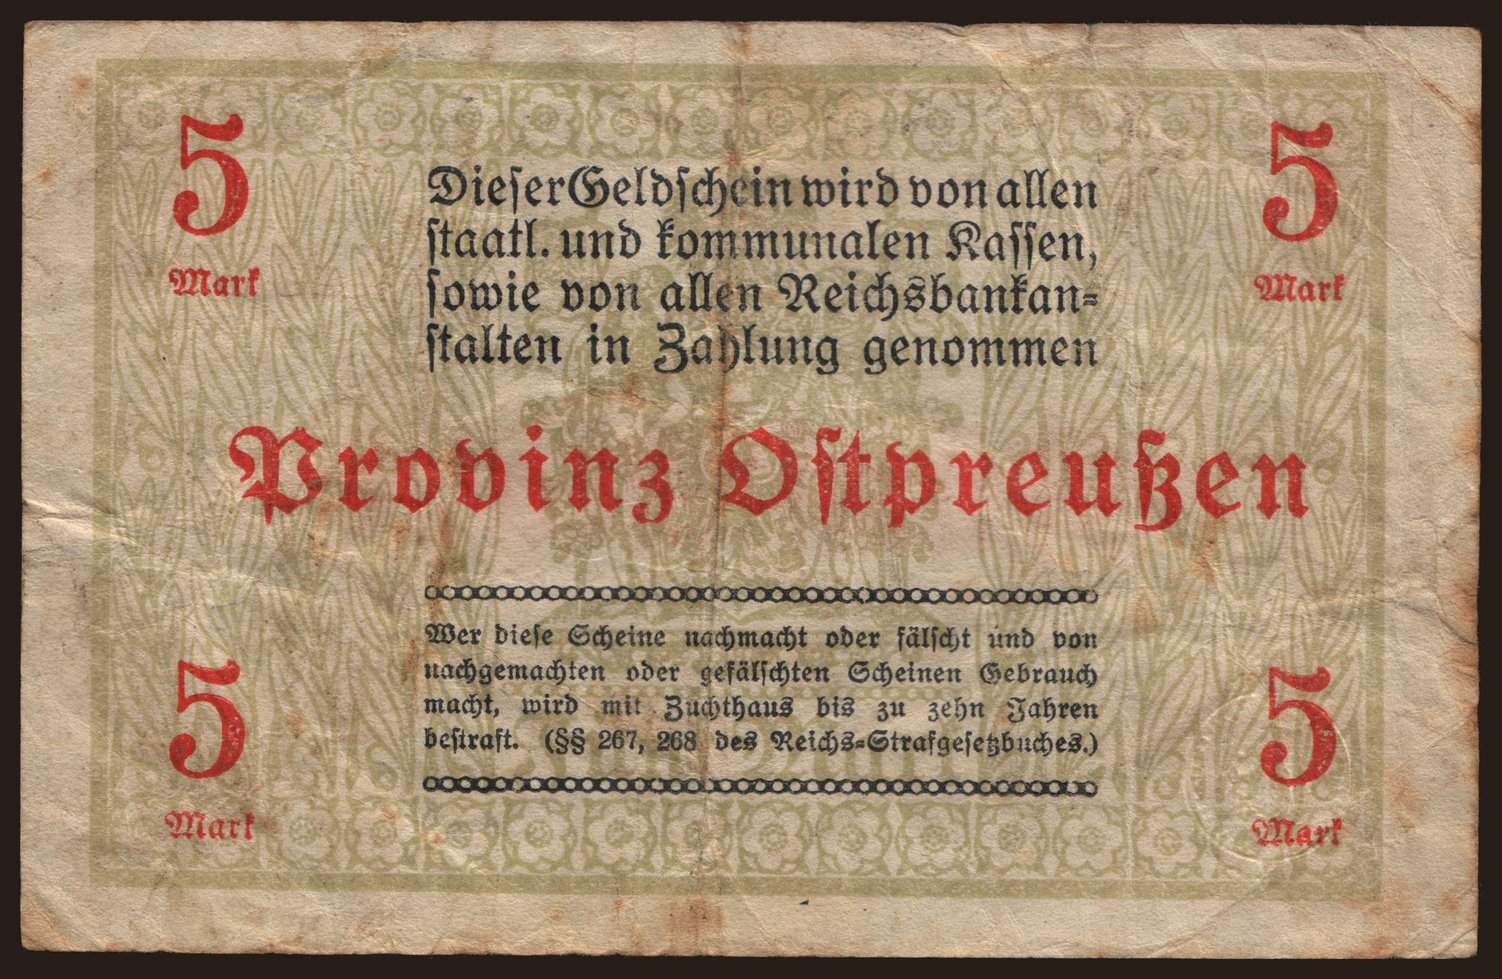 5
Mark
5
Mark
Dieser Geldschein wird von allen
staatl. und kommunalen Kassen,
sowie von allen Reichsbankan=
stalten in Zahlung genommen
Provinz Ostpreußen
Wer diese Scheine nachmacht oder fälscht und von
nachgemachten oder gefälschten Scheinen Gebrauch
macht, wird mit Zuchthaus bis zu zehn Jahren
bestraft. (§§ 267, 268 des Reichs=Strafgesetzbuches.)
5
Mark
5
Mark